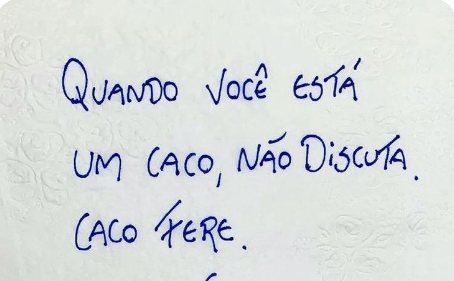 QUANDO VOCÊ ESTÁ
UM CACO, NÃO DISCUTA.
CACO FERE.